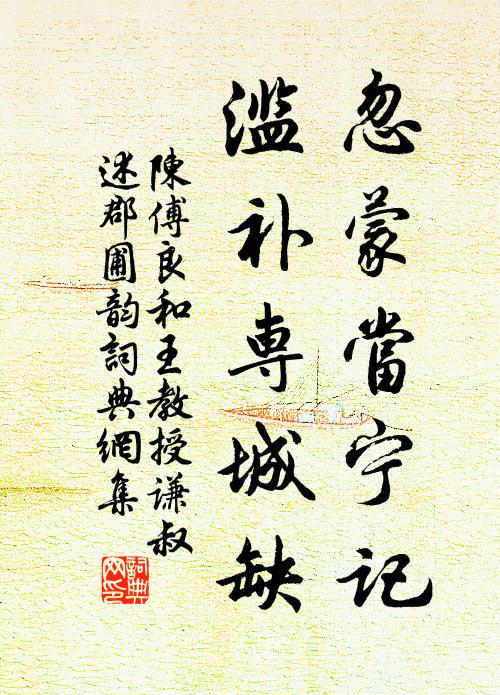 忽蒙當宁记
滥补専城缺
陳傅良和王教授谦叔
述郡圃韵詞典網集
詞典
网印